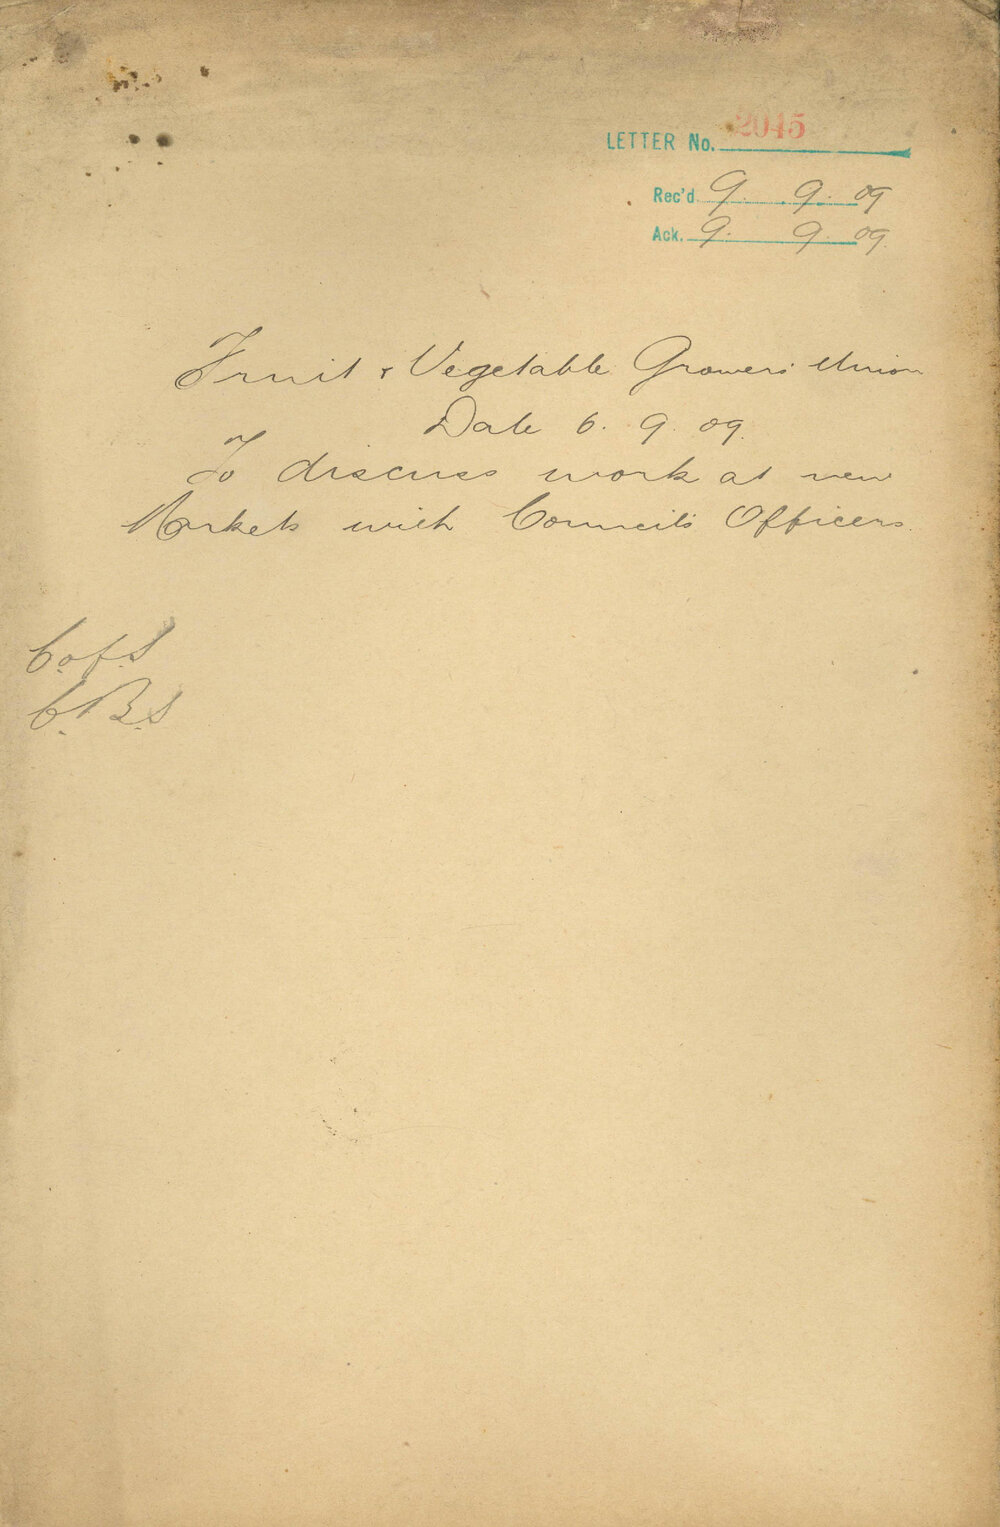 LETTER No. 2045
Rec'd. 9. 9. 09
Ack. 9. 9. 09.
Fruit & Vegetable Growers' Union
Date 6. 9. 09.
To discuss work at new
Markets with Council's Officers.
C. of S.
C. B. S